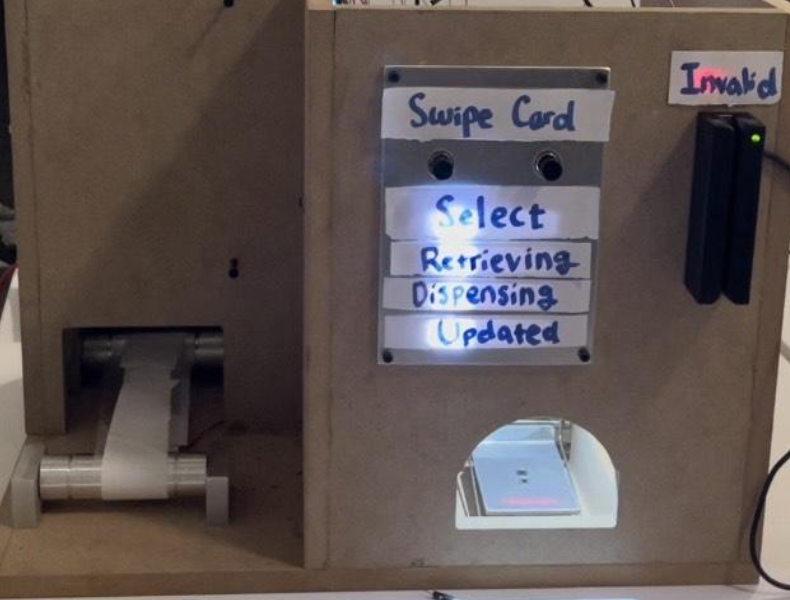 Invalid
Swipe Card
Select
Retrieving
Dispensing
Updated